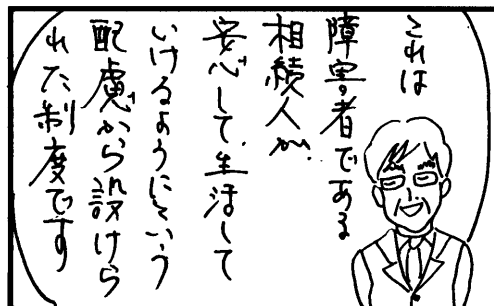 これは
障害者である
相続人が
安心して生活して
いけるようにという
配慮から設けら
れた制度です